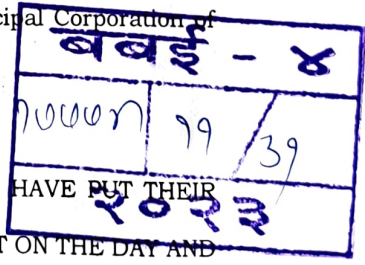 cipal Corporation of
बबई - ४
११ / ३१
HAVE PUT THEIR
२०२३
T ON THE DAY AND